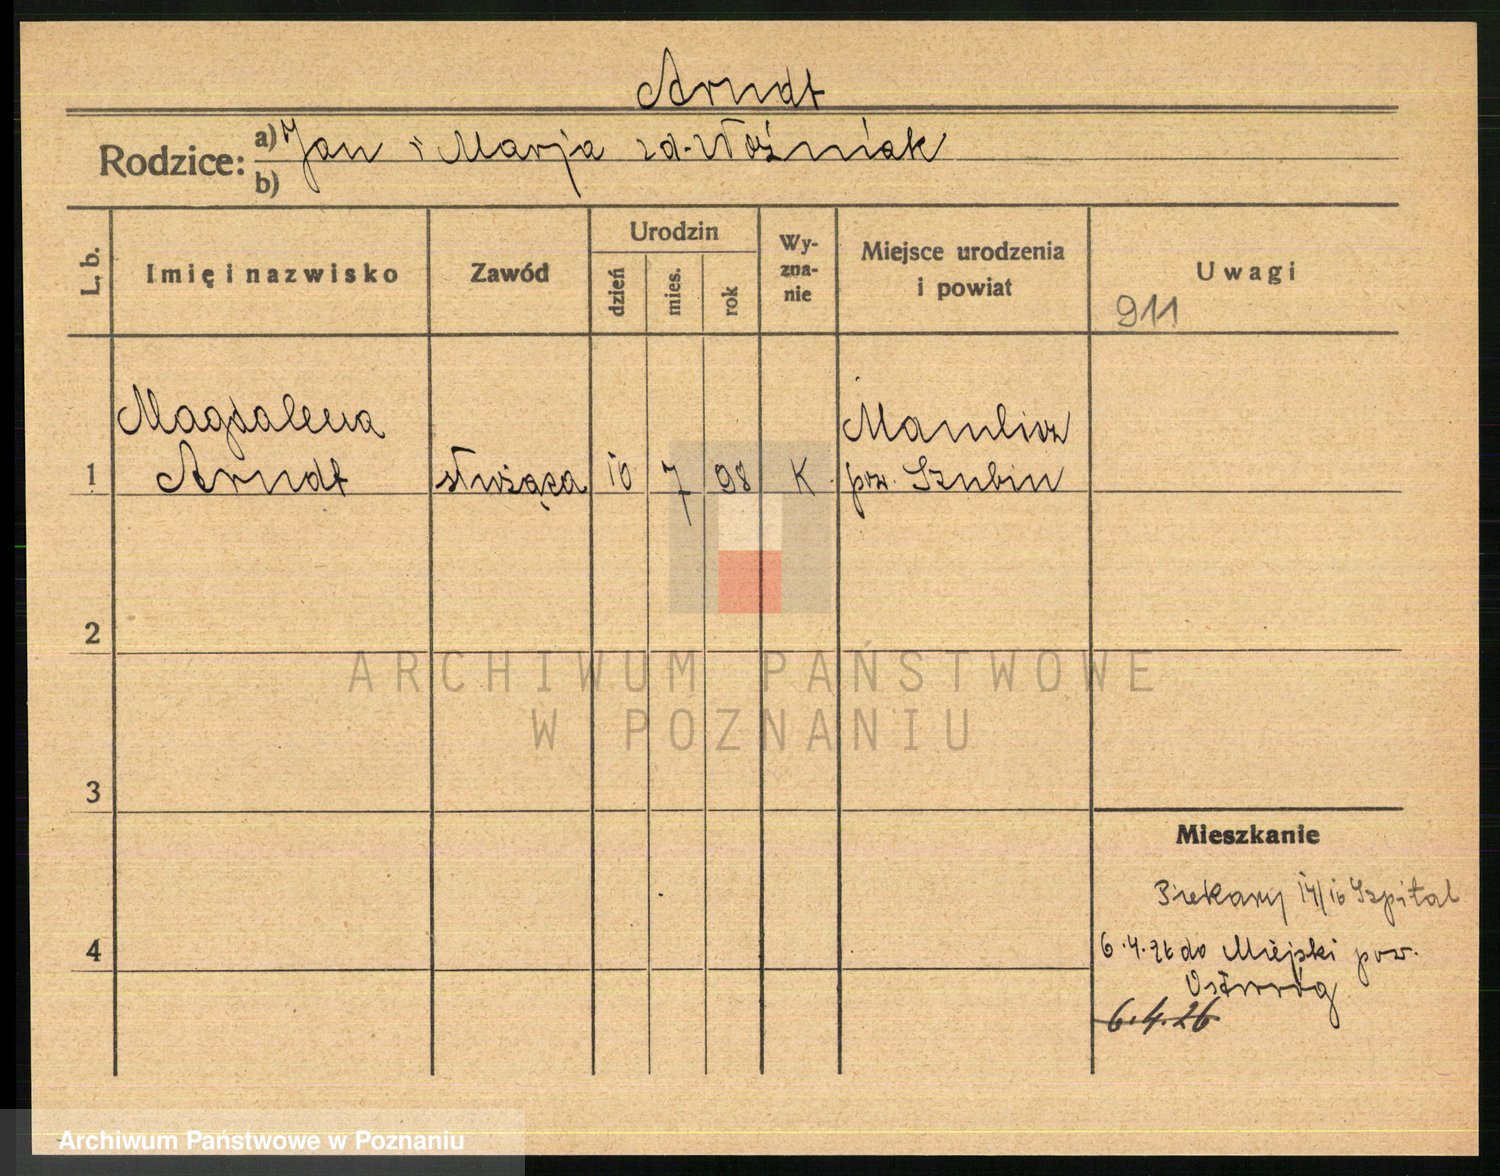 Arndt
Rodzice: a) Jan i Marja zd. Woźniak
b)
L. b.
Imię i nazwisko
Zawód
Urodzin
dzień
mies.
rok
Wy-
zna-
nie
Miejsce urodzenia
i powiat
Uwagi
911
Magdalena
Arndt
1
służąca
10
7
98
K
Mamlicz
pow. Szubin
2
3
4
Mieszkanie
Piekary 14/16 Szpital
6.4.26 do Miejski pow.
6.4.26
ARCHIWUM PAŃSTWOWE
W POZNANIU
Archiwum Państwowe w Poznaniu